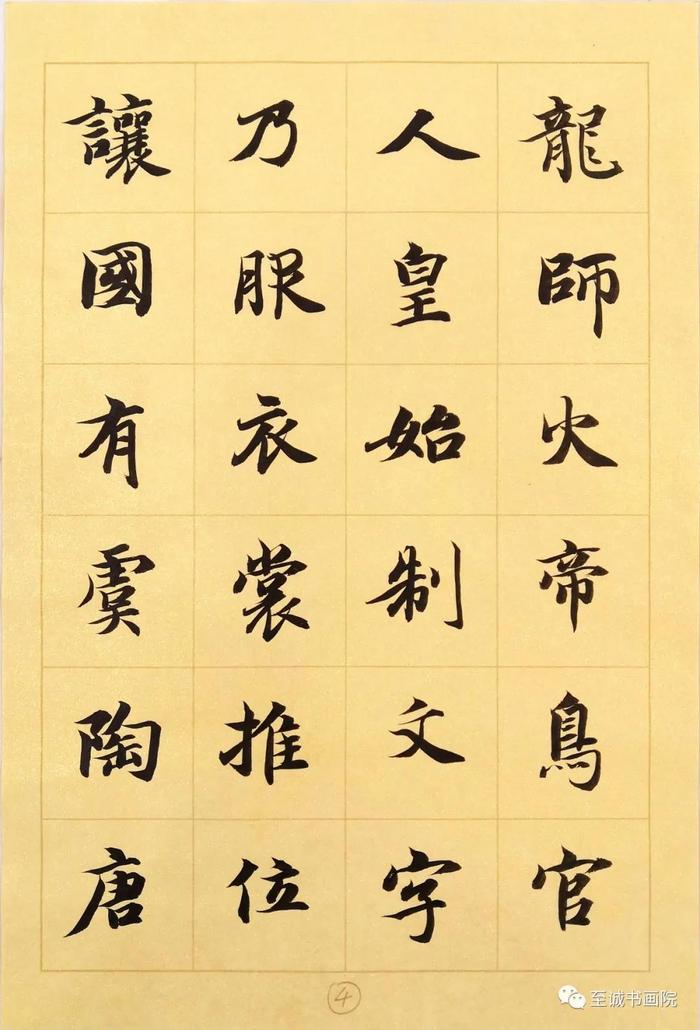 龍師火帝鳥官
人皇始制文字
乃服衣裳推位
讓國有虞陶唐
4
至诚书画院